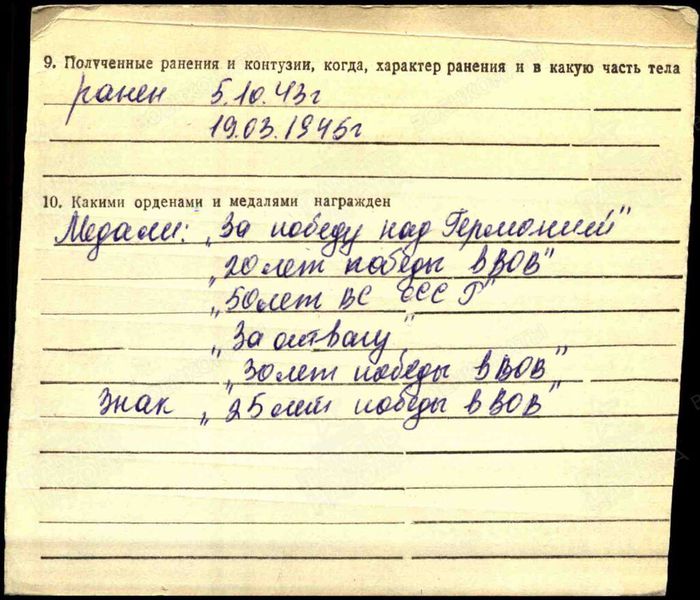 9. Полученные ранения и контузии, когда, характер ранения и в какую часть тела
ранен 5.10.43г
19.03.1945г
10. Какими орденами и медалями награжден
Медали: „За победу над Германией"
„20 лет победы в ВОВ"
„50 лет ВС СССР"
„За отвагу"
„30 лет победы в ВОВ"
Знак „25 лет победы в ВОВ"